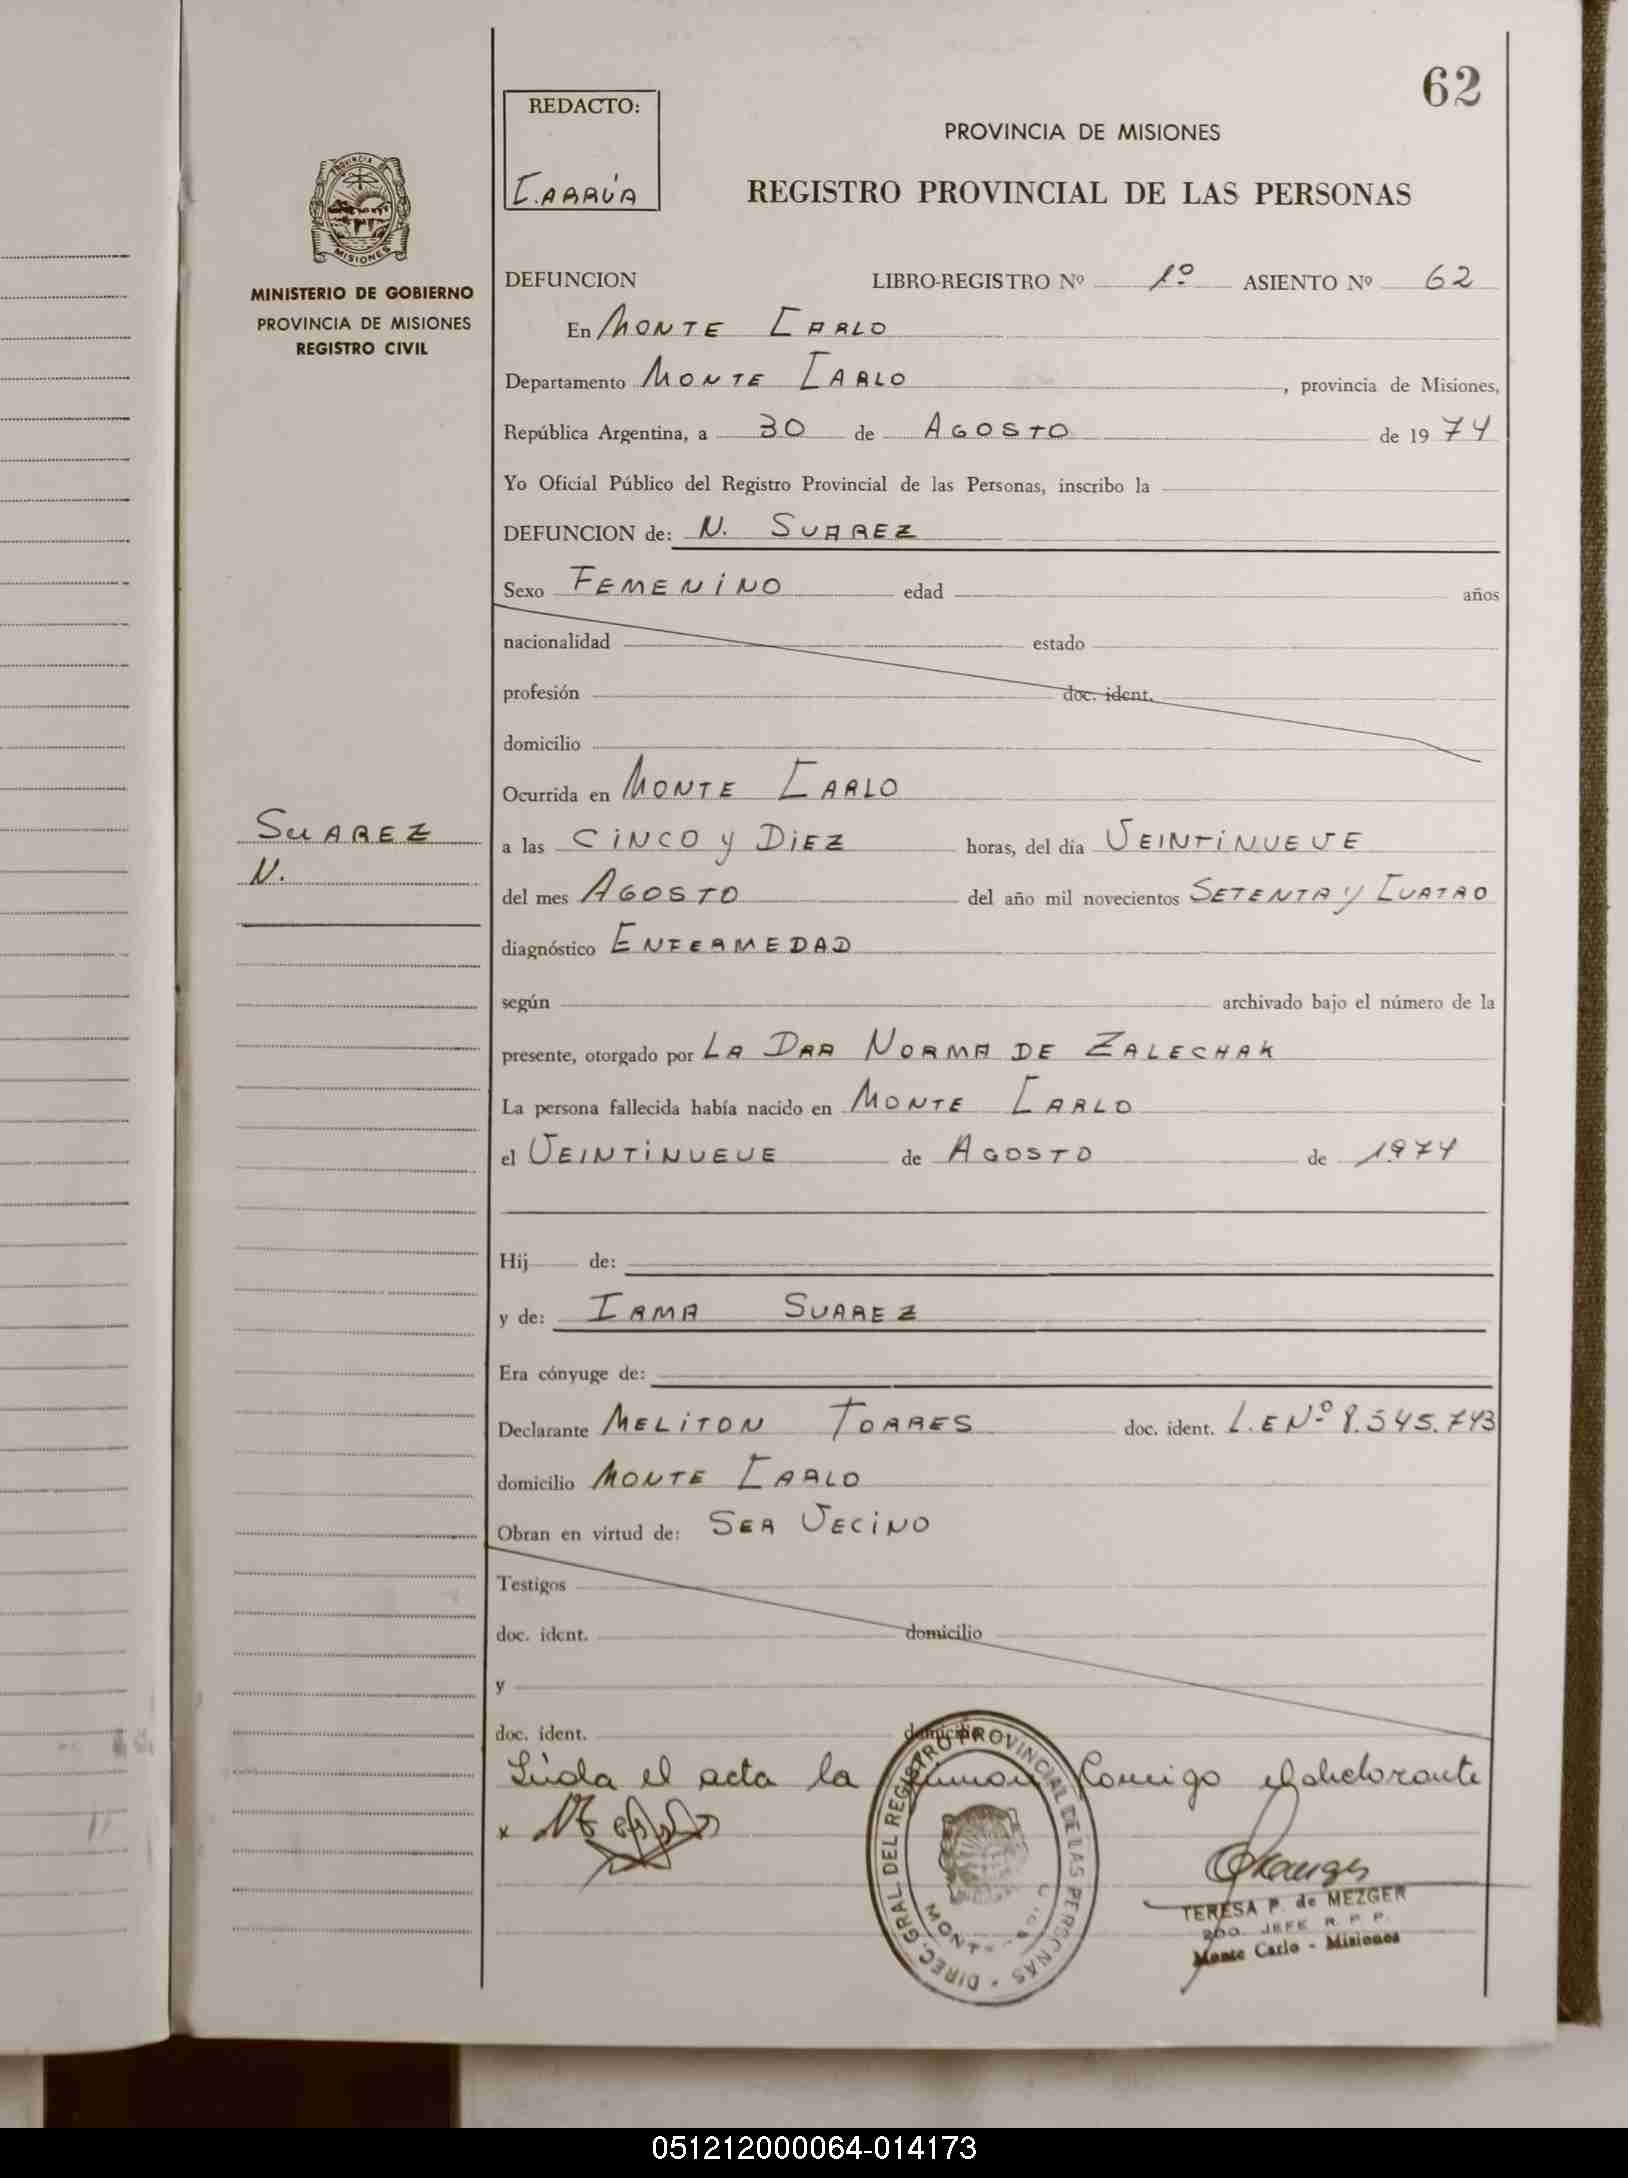 62
REDACTO:
CARRÚA
PROVINCIA DE MISIONES
REGISTRO PROVINCIAL DE LAS PERSONAS
PROVINCIA DE
MISIONES
MINISTERIO DE GOBIERNO
PROVINCIA DE MISIONES
REGISTRO CIVIL
DEFUNCION LIBRO-REGISTRO Nº 1º ASIENTO Nº 62
En MONTE CARLO
Departamento MONTE CARLO, provincia de Misiones,
República Argentina, a 30 de AGOSTO de 1974
Yo Oficial Público del Registro Provincial de las Personas, inscribo la
DEFUNCION de: N. SUAREZ
Sexo FEMENINO edad años
nacionalidad estado
profesión doc. ident.
domicilio
Ocurrida en MONTE CARLO
SUAREZ
N.
a las CINCO y DIEZ horas, del día VEINTINUEVE
del mes AGOSTO del año mil novecientos SETENTA y CUATRO
diagnóstico ENFERMEDAD
según archivado bajo el número de la
presente, otorgado por LA DRA NORMA DE ZALECHAK
La persona fallecida había nacido en MONTE CARLO
el VEINTINUEVE de AGOSTO de 1974
Hij de:
y de: IRMA SUAREZ
Era cónyuge de:
Declarante MELITON TORRES doc. ident. L.E Nº 8.545.743
domicilio MONTE CARLO
Obran en virtud de: SER VECINO
Testigos
doc. ident. domicilio
y
doc. ident. domicilio
Leída el acta la firman Conmigo el declarante
DIREC. GRAL. DEL REGISTRO PROVINCIAL DE LAS PERSONAS
TERESA P. de MEZGER
JEFE R. P. P.
Monte Carlo - Misiones
051212000064-014173